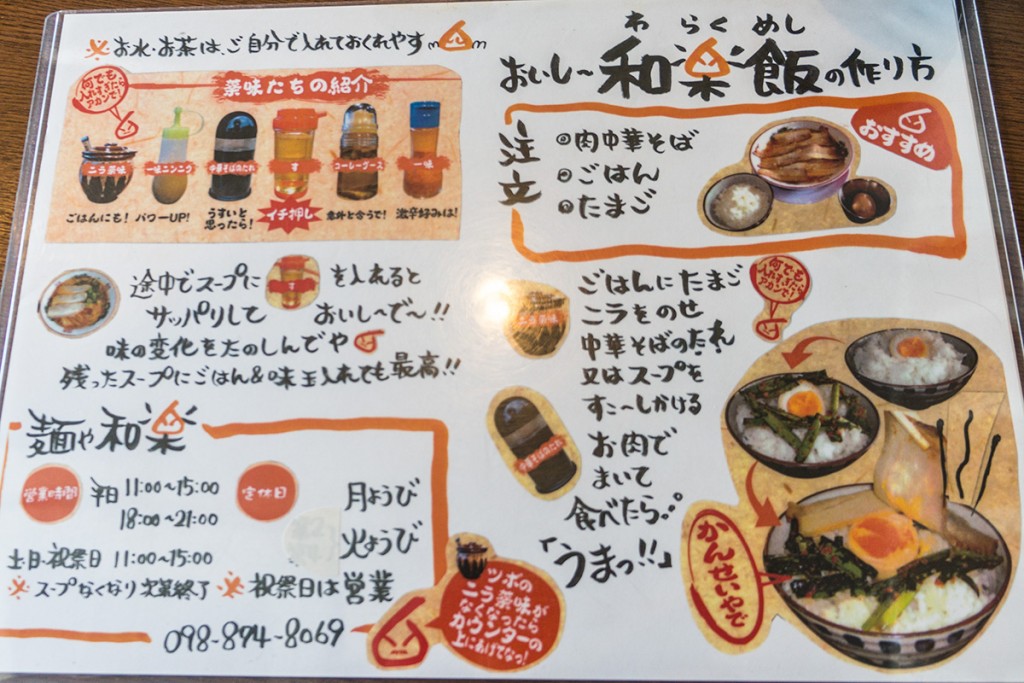 ※お水・お茶は、ご自分で入れておくれやす
何でも入れすぎたアカンで!
薬味たちの紹介
ニラ薬味
一味ニンニク
中華そばたれ
す
コーレーグース
一味
ごはんにも!
パワーUP!
うすいと思ったら!
イチ押し
意外と合うで!
激辛好みは!
途中でスープに
す
を入れると
サッパリして
おいし〜で〜!!
味の変化をたのしんでや
残ったスープにごはん&味玉入れても最高!!
麺や和楽
営業時間
平日 11:00〜15:00
18:00〜21:00
土日・祝祭日 11:00〜15:00
※スープなくなり次第終了
定休日
月ようび
火ようび
※祝祭日は営業
098-874-8069
ツボの
ニラ薬味が
なくなったら
カウンターの
上にあげてなっ!
わらくめし
おいし〜和楽飯の作り方
おすすめ
注文
◎肉中華そば
◎ごはん
◎たまご
ごはんにたまご
ニラをのせ
中華そばのたれ
又はスープを
すこ〜しかける
お肉で
まいて
食べたら…
「うまっ!!」
ニラ薬味
中華そばたれ
かんせいやで